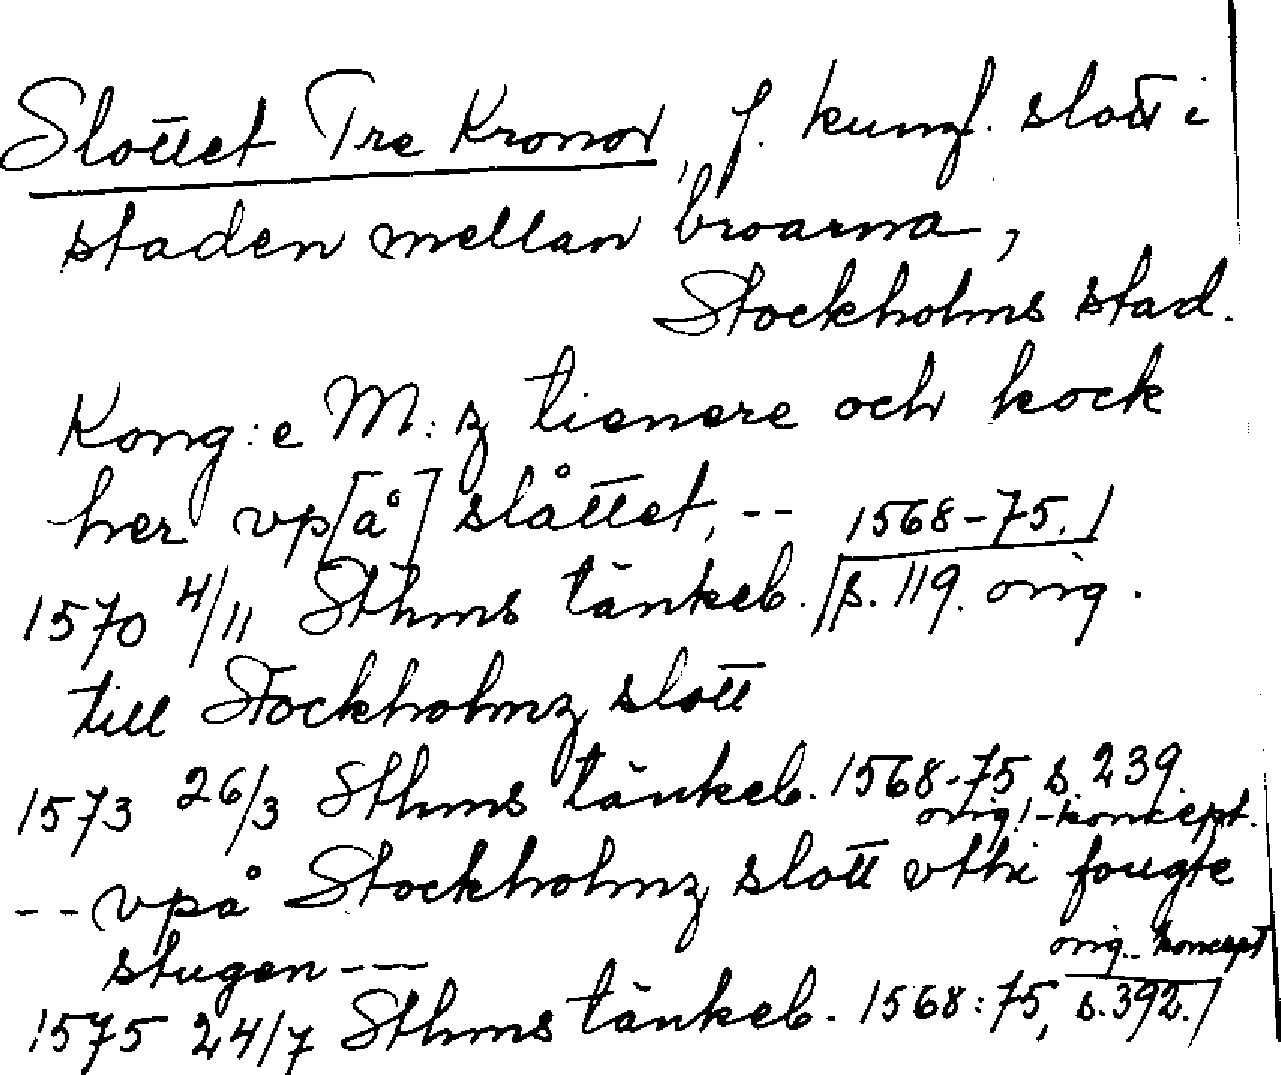 Slottet Tre Kronor, f. kungl. slott i
staden mellan broarna,
Stockholms stad.
Kong:e M:z tienere och kock
her vp[å] slåttet, -- 1568-75./
1570 4/11 Sthms tänkeb. /s. 119. orig.
till Stockholmz slott
1573 26/3 Sthms tänkeb. 1568-75, s. 239.
orig!-koncept.
-- vpå Stockholmz slott vthi fougte
stugen ---
orig.-koncept
1575 24/7 Sthms tänkeb. 1568:75, s. 392./